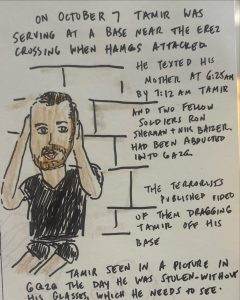 ON OCTOBER 7 TAMIR WAS
SERVING AT A BASE NEAR THE EREZ
CROSSING WHEN HAMAS ATTACKED.
HE TEXTED HIS
MOTHER AT 6:25AM
BY 7:12 AM TAMIR
AND TWO FELLOW
SOLDIERS RON
SHERMAN + NIK BAIZER.
HAD BEEN ABDUCTED
INTO GAZA.
THE TERRORISTS
PUBLISHED VIDEO
OF THEM DRAGGING
TAMIR OFF HIS
BASE
TAMIR SEEN IN A PICTURE IN
GAZA THE DAY HE WAS STOLEN-WITHOUT
HIS GLASSES, WHICH HE NEEDS TO SEE.